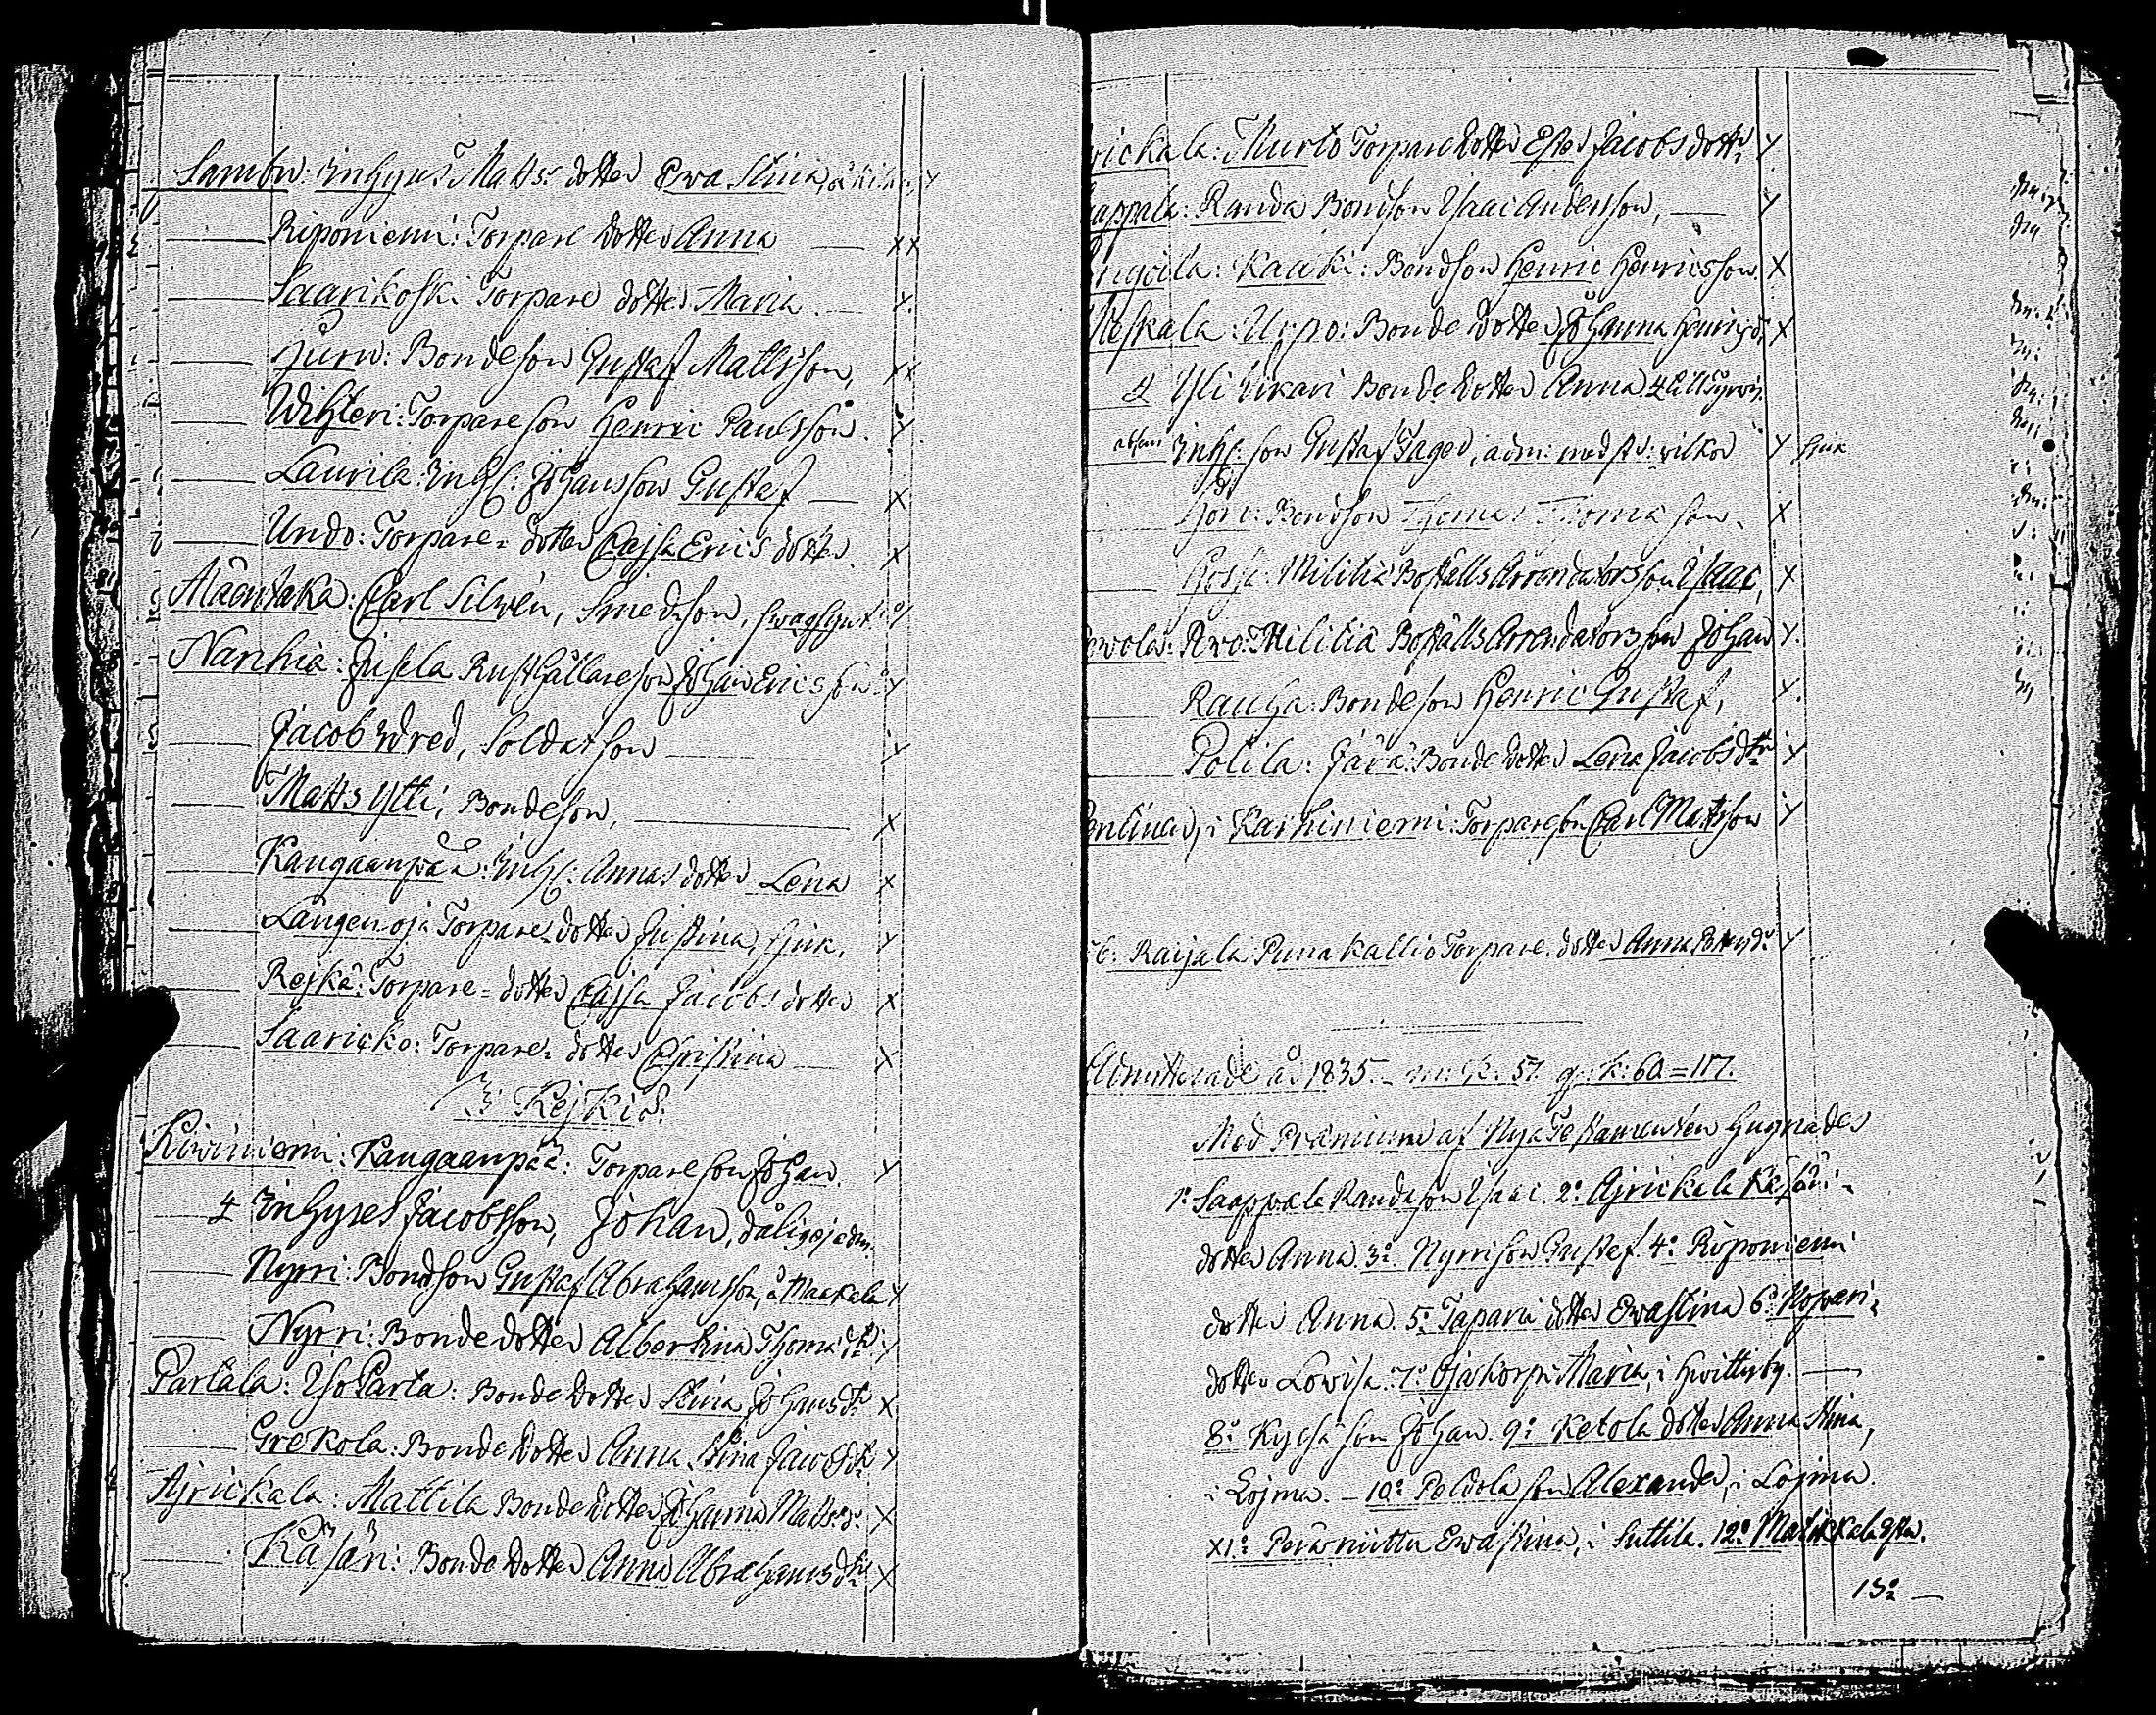 Sambu: Inhyses Matts: dotter Ewa Stina, Y
Riponiemi: Torpare dotter Anna — XX
Saarikoski Torpare dotter Maria — Y.
Juru: Bondeson Gustaf Mattsson, XX
Wihteri: Torpareson Henric Paulsson. Y
Laurila: Inhs: Johansson Gustaf — X
Undo: Torpare= dotter Cajsa Erics dotter. X
Mäentaka: Carl Silwén, Smedson, swagsynt
Nanhia: Jusela Rusthållareson Johan Ericsson Y
Jacob Wred, Soldatson — Y
Matts Ytti, Bondeson, — X
Kangaanpää: Inhs: Annas dotter Lena X
Längenoja Torpare=dotter Justina, sjuk, Y
Rejkä: Torpare=dotter Cajsa Jacobs dotter X
Saaricko: Torpare= dotter Christina — X
I Kejkis.
Kiwiniemi: Kangaanpää: Torpareson Johan. Y
4 Inhyses Jacobsson, Johan, dålig
Nyrri: Bondson Gustaf Abrahamsson, à Maakala Y
Nyrri: Bondedotter Albertina Thomædtr Y
Partala: Iso Parta: Bondedotter Stina Johansdtr X
Grekola: Bondedotter Anna Stina Jacobsdtr Y
Ajrickala: Mattila Bondedotter Johanna Mattsd. X
Käsäri: Bondedotter Anna Abrahamsdtr X
rickala: Murto Torparedotter Ester Jacobsdottr Y
appala: Randa Bondson Isaac Andersson, — Y
ngoila: Kaaki: Bondson Henric Henricsson, X
Meskala: Urpo: Bondedotter Johanna Henricsdr X
4 Yli Kikari Bondedotter Anna.
Inhs: son Gustaf Jager, adm: med wilkor Y sjuk
Horu: Bondson Thomas Thomæson. X
Hossi: Militiæ Boställs Arrendatorsson Isaac, X
wola: Arvo: Militiæ Boställs Arrendatorsson Johan Y.
Rauha: Bondeson Henric Gustaf, Y.
Polila: Järä: Bondedotter Lena Jacobsdtr Y
i Karhiniemi: Torpareson Carl Matsson Y
Raijala Punakallio Torpare dotter Anna Y
Admitterade år 1835. — m: k: 57. q: k: 60 = 117.
Med Præmium af Nya Testamenten hugnades
1: Saappala Randa son Isaac. 2: Ajrickala Käsäri=
dotter Anna. 3: Nyrri son Gustaf. 4: Riponiemi
dotter Anna. 5: Tapari dotter Ewastina 6: Nopari=
dotter Lowisa. 7: Ojakorpi Maria, i Hwittisby. —
8: Kylhä son Johan. 9: Ketola dotter Anna Stina,
i Lojma. — 10: Peldola son Alexander, i Lojma.
XI: Peräniittu Ewa Stina, i Suttila. 12: Matikkala Ester.
13: —